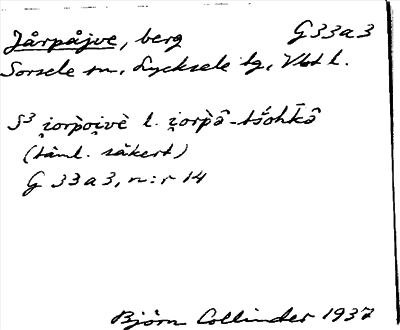 Jårpåjve, berg G 33 a 3
Sorsele sn, Lycksele lg, Vbt l.
S³ i̯orpo̭ivè l. i̯orpɑ̂-tšohk̄ɑ̂
(täml. säkert)
G 33 a 3, n:r 14
Björn Collinder 1937